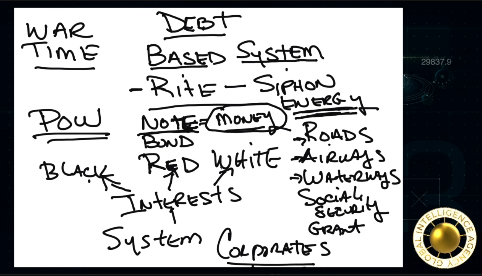 WAR
TIME
DEBT
BASED SYSTEM
- RITE - SIPHON
ENERGY
POW
NOTE = MONEY
BOND
BLACK RED WHITE
INTERESTS
SYSTEM
CORPORATES
→ ROADS
→ AIRWAYS
→ WATERWAYS
SOCIAL
SECURITY
GRANT
29837.9
GLOBAL INTELLIGENCE AGENCY